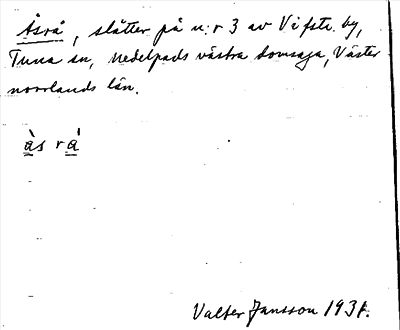 Åsrå, slåtter på n:r 3 av Vifsta by,
Tuna sn, Medelpads västra domsaga, Väster
norrlands län.
às rá
Valter Jansson 1931.